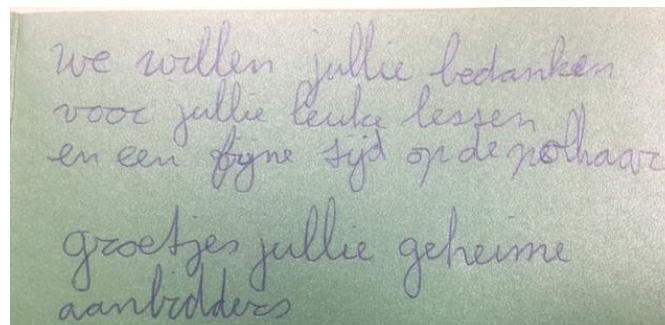 we willen jullie bedanken
voor jullie leuke lessen
en een fijne tijd op de polhaar
groetjes jullie geheime
aanbidders